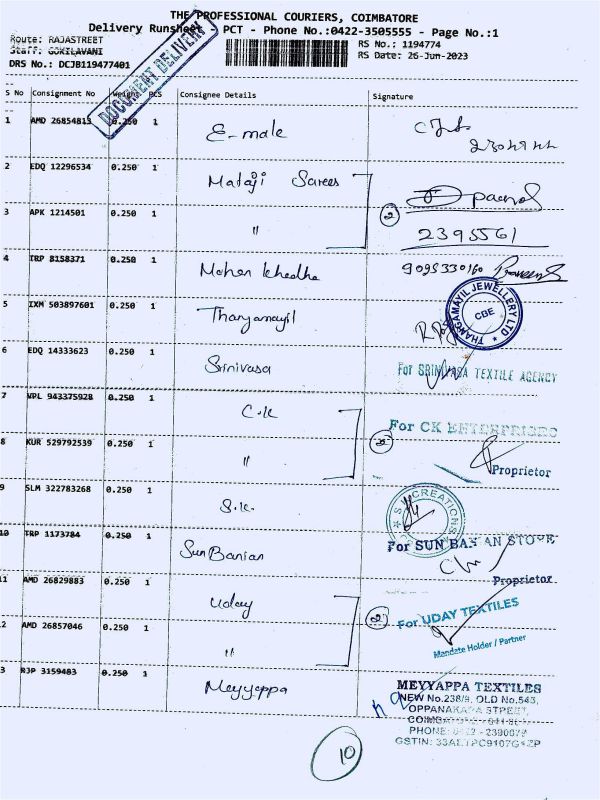 THE PROFESSIONAL COURIERS, COIMBATORE
Delivery Runsheet - PCT - Phone No.:0422-3505555 - Page No.:1
Route: RAJASTREET
Staff: GOKILAVANI
DRS No.: DCJB119477401
RS No.: 1194774
RS Date: 26-Jun-2023
DOCUMENT DELIVERY
S No Consignment No Weight PCS Consignee Details Signature
1 AMD 26854813 0.250 1 E-male
2 EDQ 12296534 0.250 1 Mataji Sarees
3 APK 1214501 0.250 1 " 2 2395561
4 TRP 8158371 0.250 1 Mohan 9095330160
THANGAMAYIL JEWELLERY LTD
CBE
5 IXM 503897601 0.250 1 Thangamayil
6 EDQ 14333623 0.250 1 Srinivasa For SRINIVASA TEXTILE AGENCY
7 VPL 943375928 0.250 1 C.K For CK ENTERPRISES
8 KUR 529792539 0.250 1 " 2 Proprietor
9 SLM 322783268 0.250 1 S.K. S.K CREATIONS
10 TRP 1173784 0.250 1 Sun Banian For SUN BANIAN STORE
Proprietor
11 AMD 26829883 0.250 1 Uday 2 For UDAY TEXTILES
12 AMD 26857046 0.250 1 " Mandate Holder / Partner
13 RJP 3159483 0.250 1 Meyyappa MEYYAPPA TEXTILES
NEW No.238/9, OLD No.543,
OPPANAKARA STREET,
COIMBATORE
PHONE:
GSTIN:
10